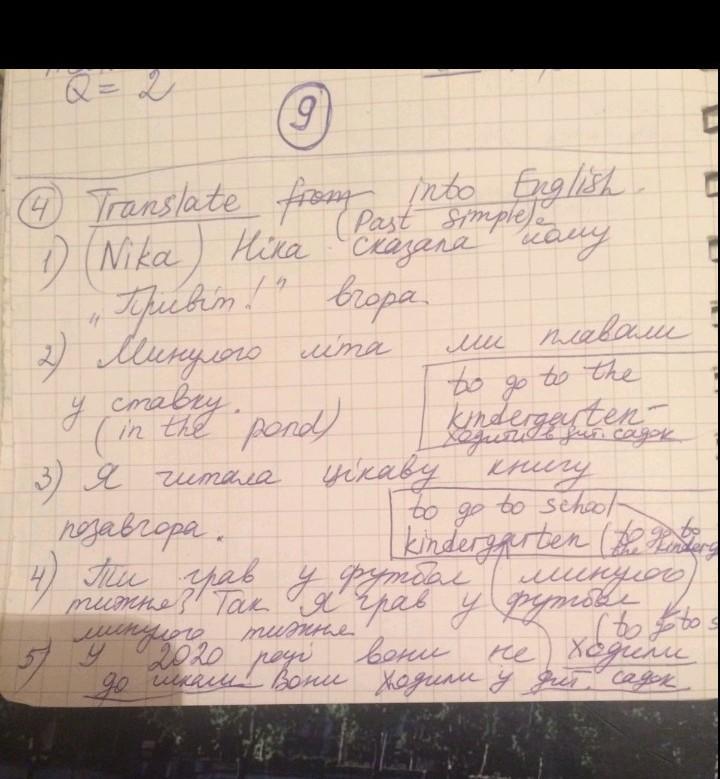 Q = 2
9
4 Translate from into English.
(Past Simple).
1) (Nika) Ніка сказала йому
„Привіт!" вчора.
2) Минулого літа ми плавали
у ставку.
(in the pond)
to go to the
kindergarten –
ходити в дит. садок
3) Я читала цікаву книгу
позавчора.
to go to school
kindergarten (to go to
the kinderg
4) Ти грав у футбол минулого
тижня? Так Я грав у футбол
минулого тижня
(to go to s
5) У 2020 році вони не ходили
до школи. Вони ходили у дит. садок